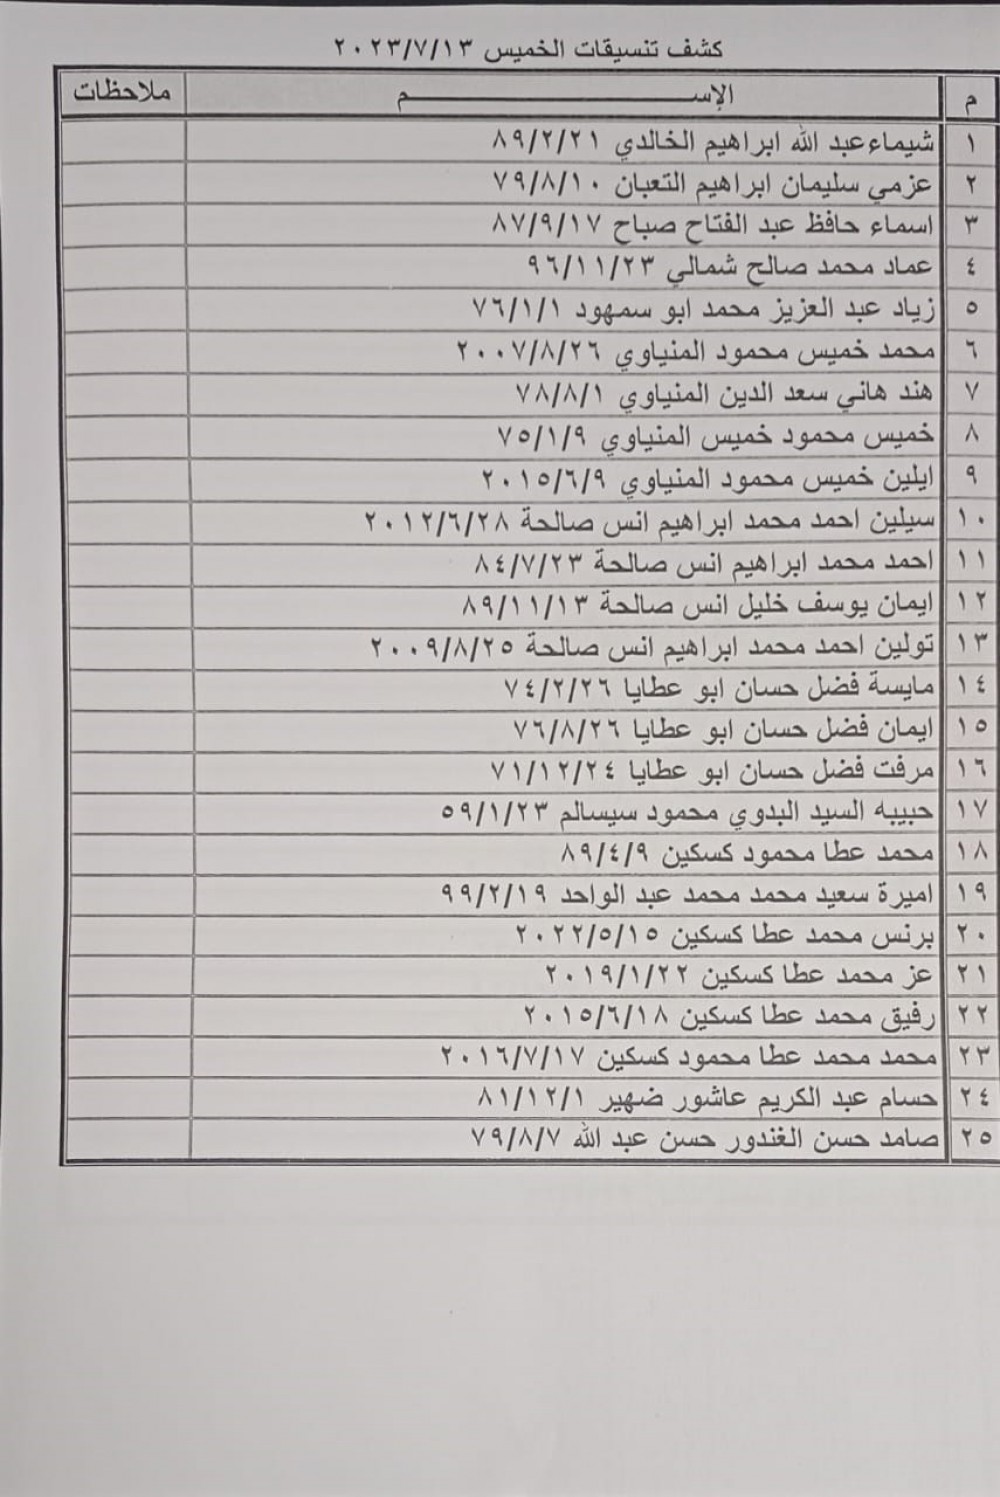 كشف تنسيقات الخميس ٢٠٢٣/٧/١٣
م الإســـــــم ملاحظات
١ شيماءعبد الله ابراهيم الخالدي ٨٩/٢/٢١
٢ عزمي سليمان ابراهيم التعبان ٧٩/٨/١٠
٣ اسماء حافظ عبد الفتاح صباح ٨٧/٩/١٧
٤ عماد محمد صالح شمالي ٩٦/١١/٢٣
٥ زياد عبد العزيز محمد ابو سمهود ٧٦/١/١
٦ محمد خميس محمود المنياوي ٢٠٠٧/٨/٢٦
٧ هند هاني سعد الدين المنياوي ٧٨/٨/١
٨ خميس محمود خميس المنياوي ٧٥/١/٩
٩ ايلين خميس محمود المنياوي ٢٠١٥/٦/٩
١٠ سيلين احمد محمد ابراهيم انس صالحة ٢٠١٢/٦/٢٨
١١ احمد محمد ابراهيم انس صالحة ٨٤/٧/٢٣
١٢ ايمان يوسف خليل انس صالحة ٨٩/١١/١٣
١٣ تولين احمد محمد ابراهيم انس صالحة ٢٠٠٩/٨/٢٥
١٤ مايسة فضل حسان ابو عطايا ٧٤/٢/٢٦
١٥ ايمان فضل حسان ابو عطايا ٧٦/٨/٢٦
١٦ مرفت فضل حسان ابو عطايا ٧١/١٢/٢٤
١٧ حبيبه السيد البدوي محمود سيسالم ٥٩/١/٢٣
١٨ محمد عطا محمود كسكين ٨٩/٤/٩
١٩ اميرة سعيد محمد محمد عبد الواحد ٩٩/٢/١٩
٢٠ برنس محمد عطا كسكين ٢٠٢٢/٥/١٥
٢١ عز محمد عطا كسكين ٢٠١٩/١/٢٢
٢٢ رفيق محمد عطا كسكين ٢٠١٥/٦/١٨
٢٣ محمد محمد عطا محمود كسكين ٢٠١٦/٧/١٧
٢٤ حسام عبد الكريم عاشور ضهير ٨١/١٢/١
٢٥ صامد حسن الغندور حسن عبد الله ٧٩/٨/٧